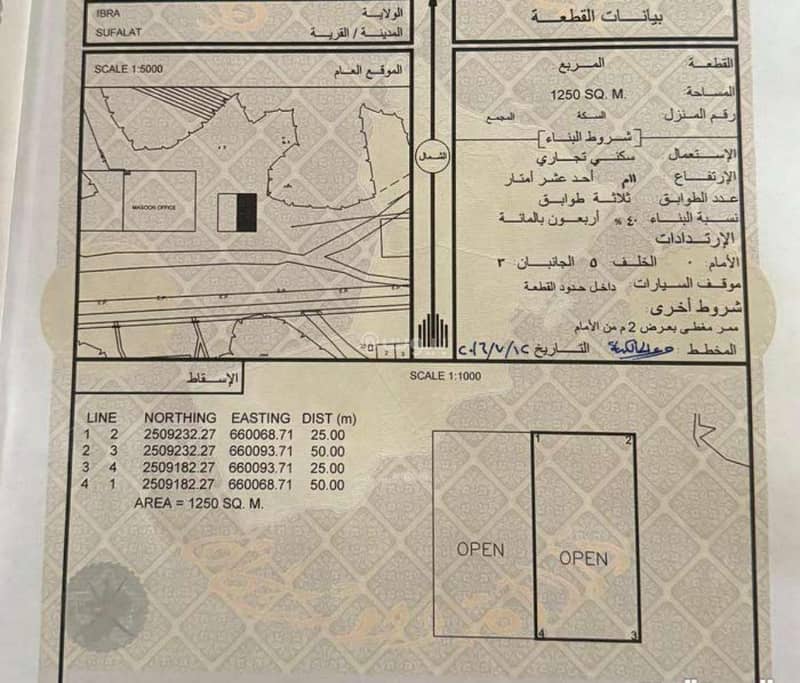 IBRA الولاية
SUFALAT المدينة / القرية
بيانات القطعة
SCALE 1:5000 الموقع العام
MASOON OFFICE
الشمال
القطعة المربع
المساحة: 1250 SQ. M.
رقم المنزل السكة المجمع
شروط البناء
الإستعمال سكني تجاري
الإرتفاع ١١م أحد عشر أمتار
عدد الطوابق ثلاثة طوابق
نسبة البناء ٤٠ % أربعون بالمائة
الإرتدادات
الأمام ٠ الخلف ٥ الجانبان ٣
موقف السيارات داخل حدود القطعة
شروط أخرى:
ممر مغطى بعرض 2 م من الأمام
المخطط التاريخ
الإسقاط
SCALE 1:1000
LINE NORTHING EASTING DIST (m)
1 2 2509232.27 660068.71 25.00
2 3 2509232.27 660093.71 50.00
3 4 2509182.27 660093.71 25.00
4 1 2509182.27 660068.71 50.00
AREA = 1250 SQ. M.
1 2
OPEN OPEN
4 3